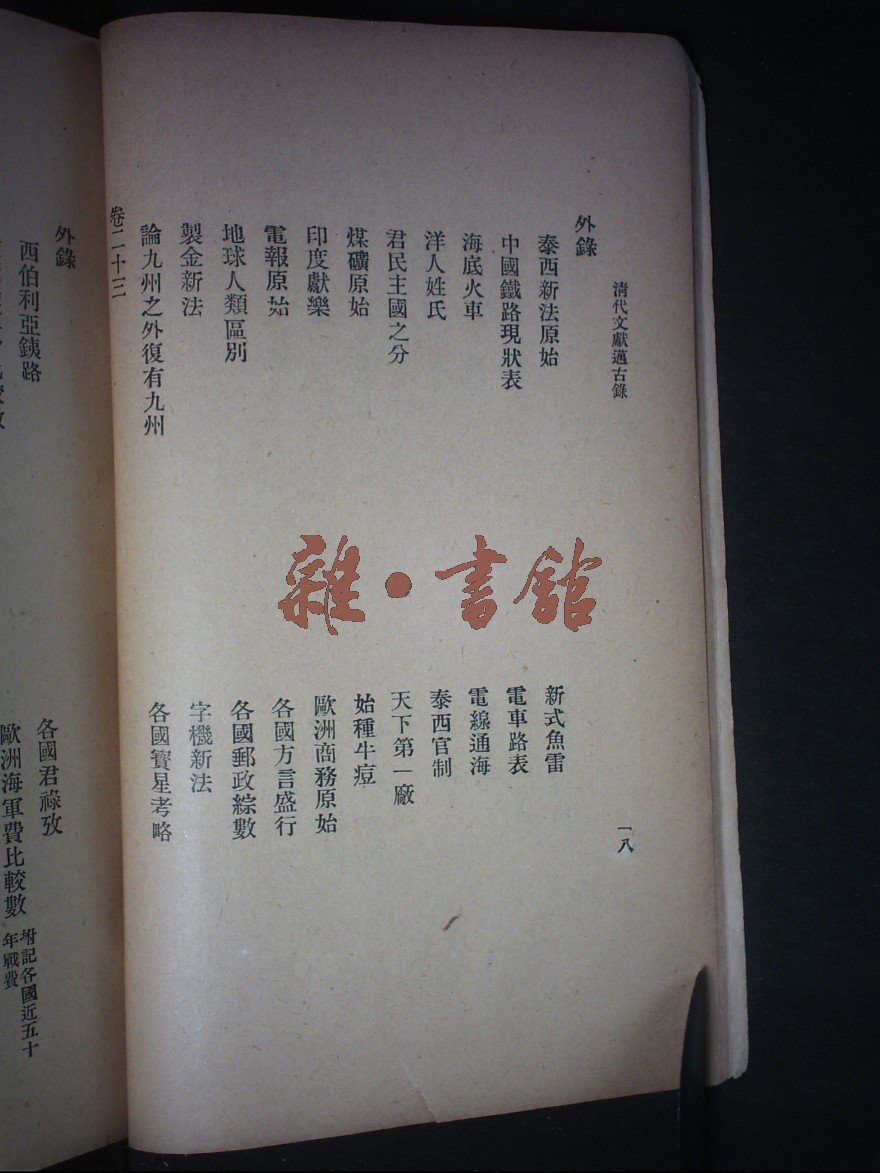 清代文獻邁古錄
一八
外錄
泰西新法原始
新式魚雷
中國鐵路現狀表
電車路表
海底火車
電線通海
洋人姓氏
泰西官制
君民主國之分
天下第一廠
煤礦原始
始種牛痘
印度獻樂
歐洲商務原始
電報原始
各國方言盛行
地球人類區別
各國郵政綜數
製金新法
字機新法
論九州之外復有九州
各國寶星考略
卷二十三
外錄
西伯利亞鐵路
各國君祿攷
歐洲海軍費比較數
附記各國近五十
年戰費
雜·書館